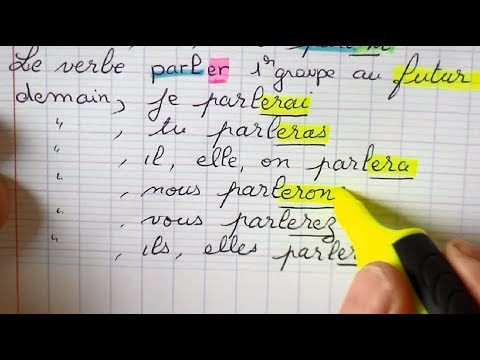 Le verbe parler 1er groupe au futur
demain, je parlerai
" , tu parleras
" , il, elle, on parlera
" , nous parleron
" , vous parlerez
" , ils, elles parler